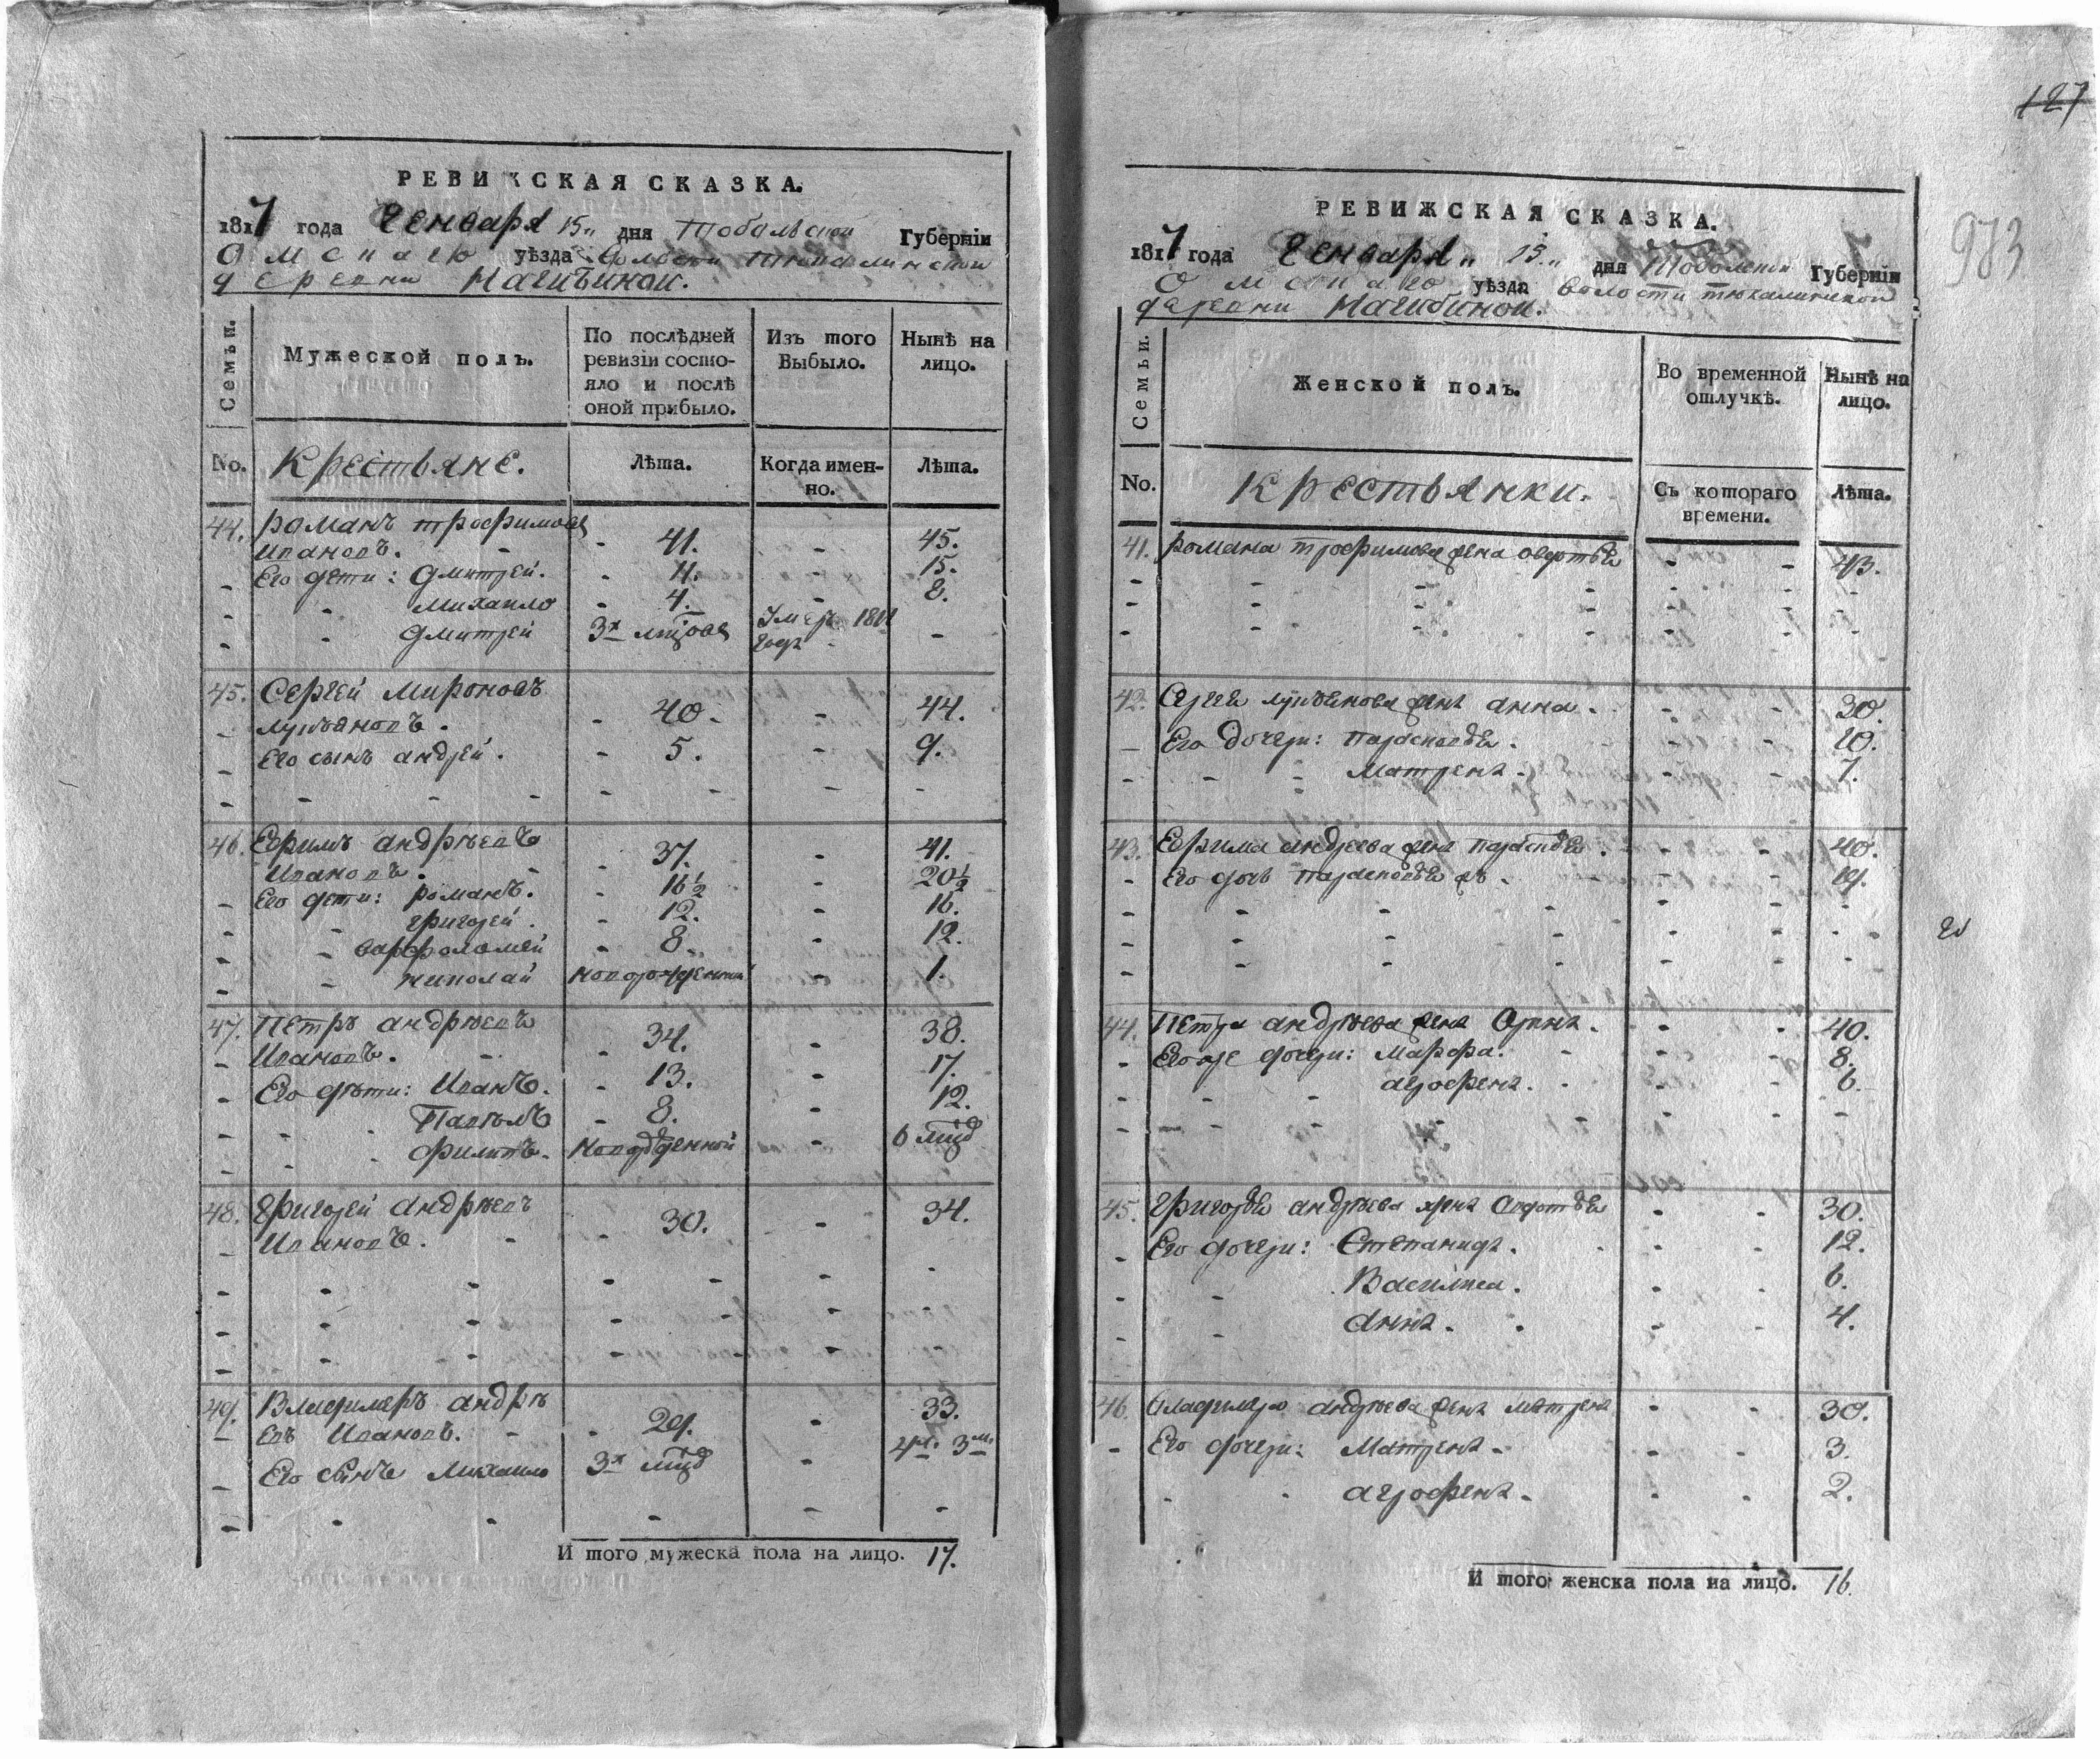 127
973
РЕВИЖСКАЯ СКАЗКА.
1817 года Генваря 15 дня Тобольской Губерніи
Омскаго уѣзда Волости Тюкалинской
деревни Нагибиной.
Семьи.
Мужеской полъ.
По послѣдней ревизіи состояло и послѣ оной прибыло.
Изъ того Выбыло.
Нынѣ на лицо.
No. Крестьяне. Лѣта. Когда именно. Лѣта.
44. Романъ трофимовъ
Ивановъ. 41. 45.
Его дети: Дмитрей. 11. 15.
Михайло 4. 8.
Дмитрей 3х Умеръ 1811 года
45. Сергей Мироновъ
Лукьяновъ. 40. 44.
Его сынъ андрей. 5. 9.
46. Ефимъ андрѣевъ
Ивановъ. 37. 41.
Его дети: Романъ. 16½ 20½
григорей. 12. 16.
варфоломей 8. 12.
николай новорожденный 1.
47. Петръ андрѣевъ
Ивановъ. 34. 38.
Его дѣти: Иванъ. 13. 17.
Павелъ 8. 12.
Филипъ. новорожденной 6
48. Григорей андрѣевъ
Ивановъ. 30. 34.
49. Владимеръ андрѣ
евъ Ивановъ. 29. 33.
Его сынъ Михайло 3х
И того мужеска пола на лицо. 17.
РЕВИЖСКАЯ СКАЗКА.
1817 года Генваря 15 дня Тобольской Губерніи
Омскаго уѣзда волости тюкалинской
деревни Нагибиной.
Семьи.
Женской полъ.
Во временной отлучкѣ.
Нынѣ на лицо.
No. Крестьянки. Съ котораго времени. Лѣта.
41. Романа трофимова жена овдотья 43.
42. Сергея лукьянова жена анна. 30.
Его дочери: парасковья. 10.
Матрена. 7.
43. Ефима андреева жена парасковья. 40.
Его дочь парасковья 19.
44. Петра андрѣева жена Орина. 40.
Его же дочери: Марфа. 8.
агрофена. 6.
45. Григорья андрѣева жена Овдотья 30.
Его дочери: Степанида. 12.
Василиса. 6.
анна. 4.
46. Владимера андрѣева жена матрена 30.
Его дочери: Матрена 3.
агрофена. 2.
И того женска пола на лицо. 16.